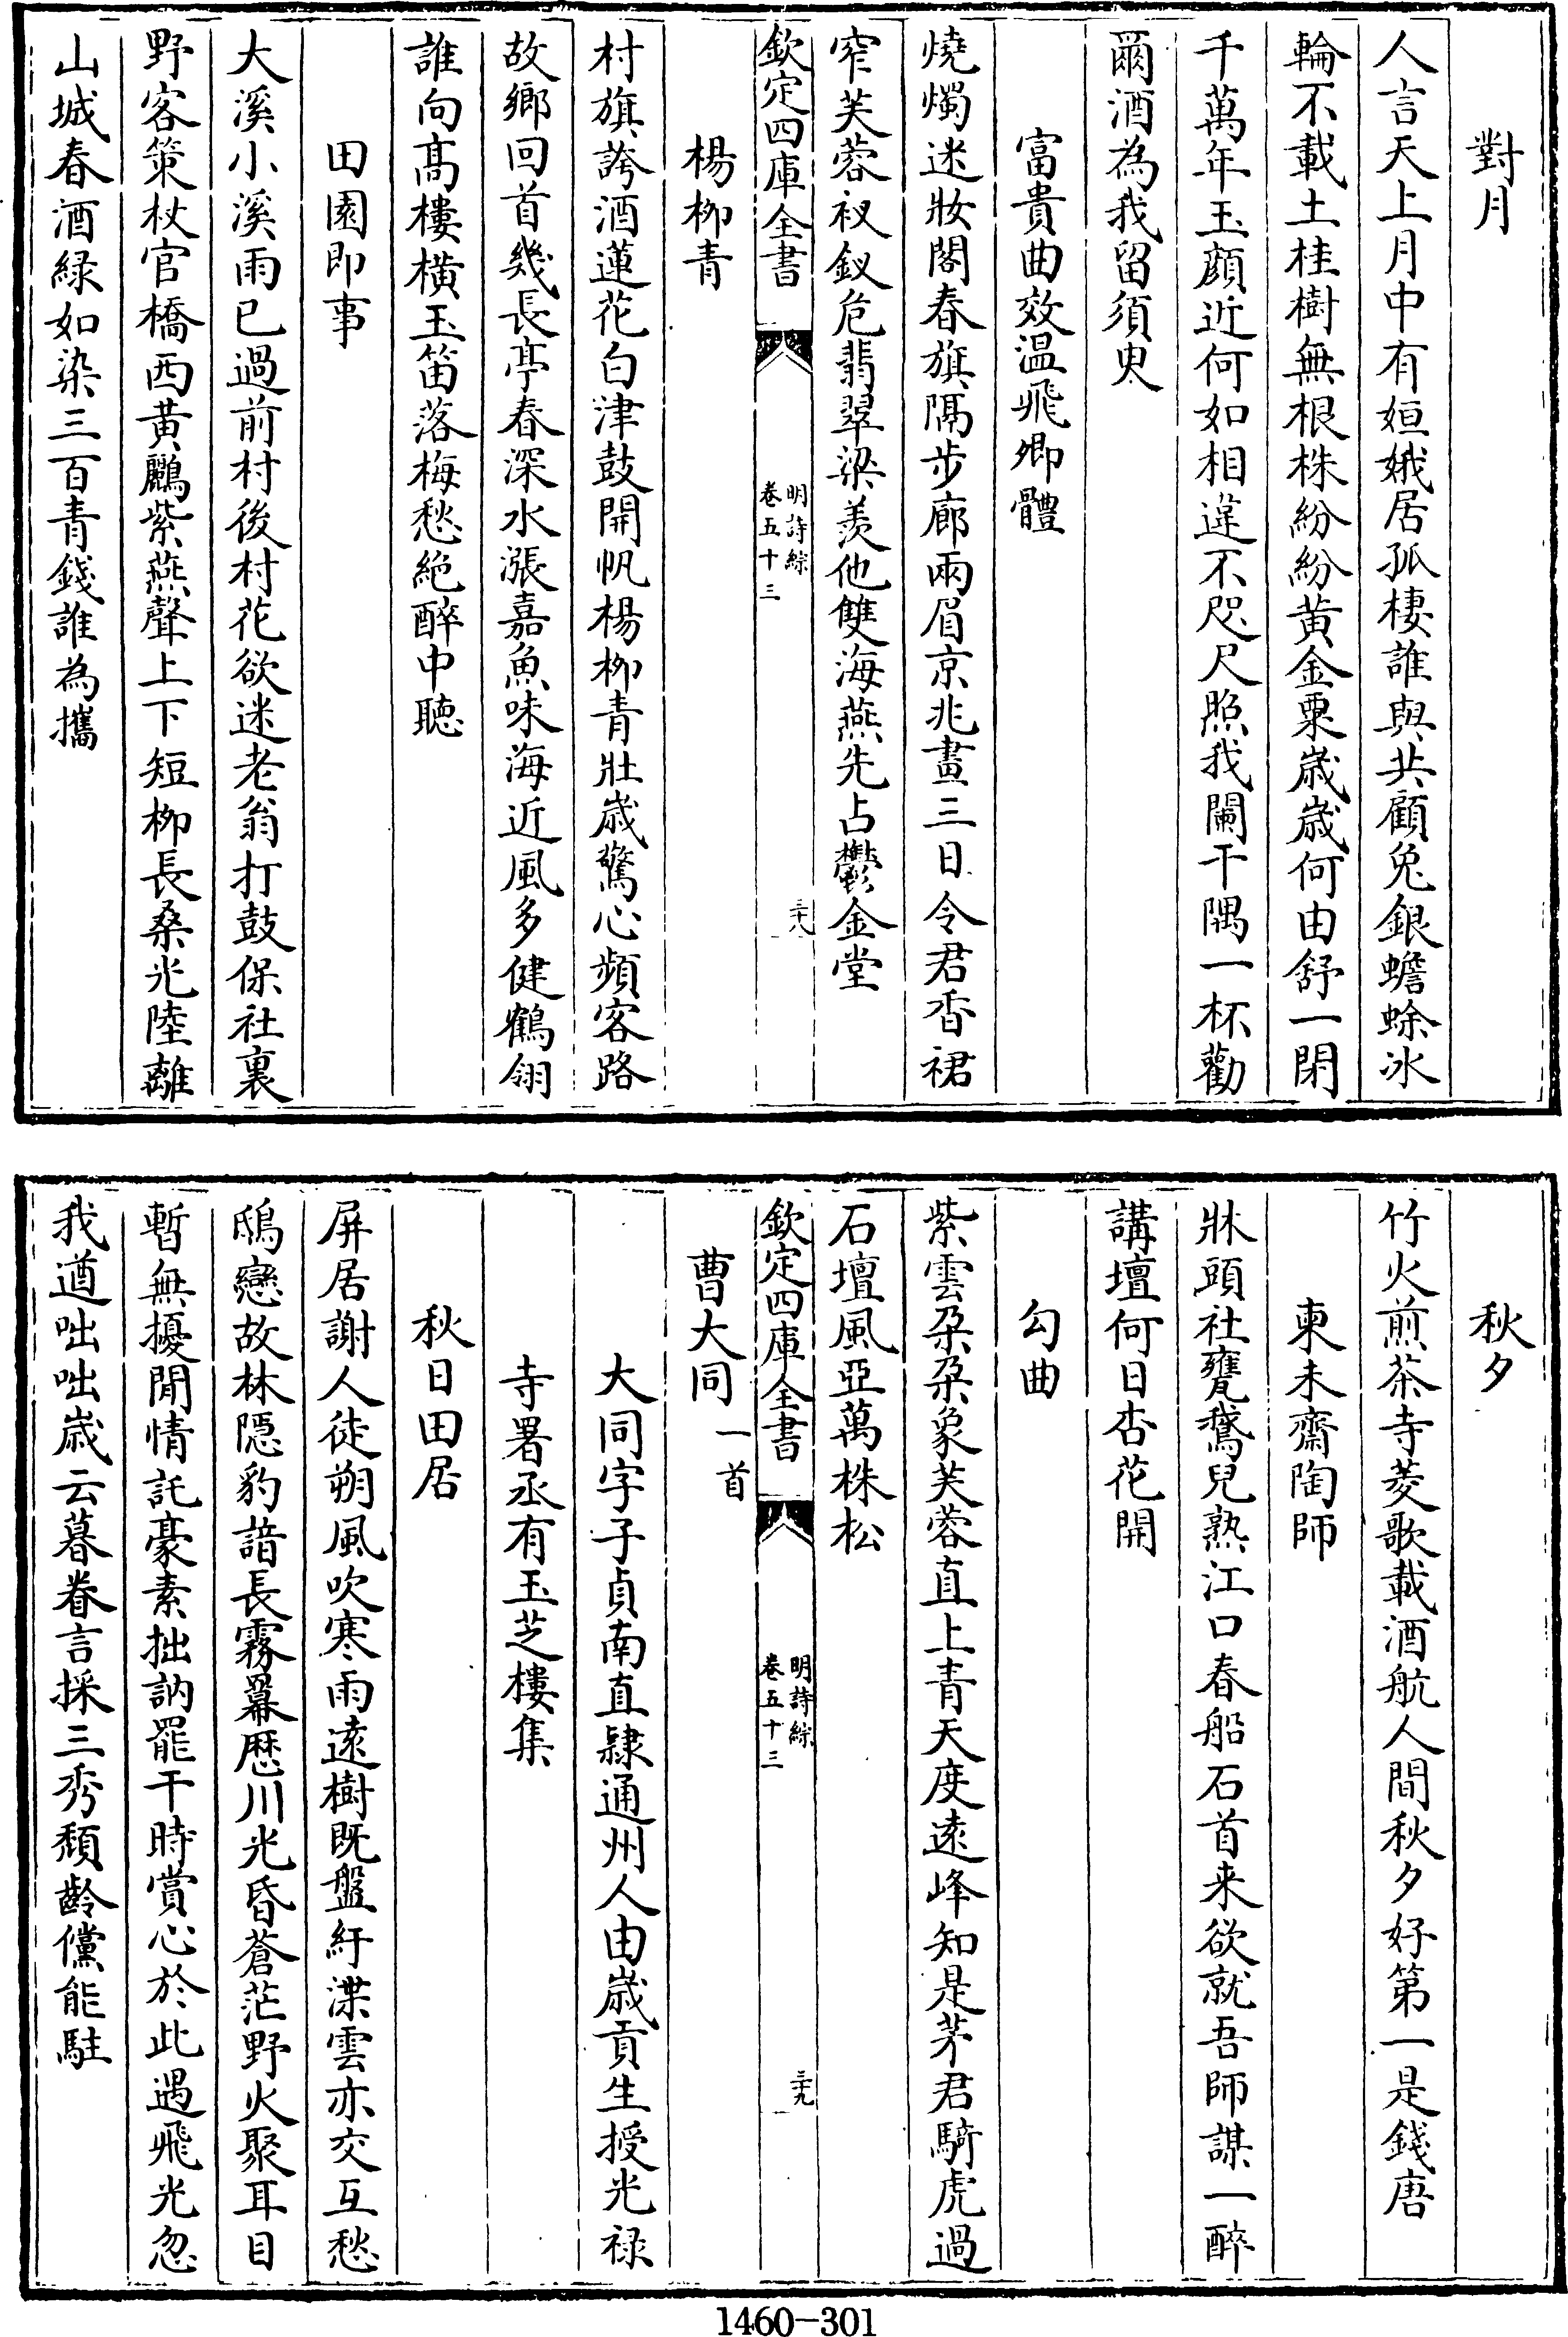 對月
人言天上月中有姮娥居孤棲誰與共顧兔銀蟾蜍冰
輪不載土桂樹無根株紛紛黄金粟歲歲何由舒一閉
千萬年玉顔近何如相違不咫尺照我闌干隅一杯勸
爾酒為我留須臾
富貴曲效温飛卿體
燒燭迷妝閣春旗隔步廊兩眉京兆畫三日令君香裙
窄芙蓉衩釵危翡翠梁羨他雙海燕先占鬱金堂
欽定四庫全書
明詩綜
卷五十三
三十八
楊柳青
村旗誇酒蓮花白津鼓開帆楊柳青壯歲驚心頻客路
故鄉回首幾長亭春深水漲嘉魚味海近風多健鶴翎
誰向髙樓橫玉笛落梅愁絶醉中聽
田園即事
大溪小溪雨已過前村後村花欲迷老翁打鼓保社裏
野客策杖官橋西黄鸝紫燕聲上下短柳長桑光陸離
山城春酒緑如染三百青錢誰為攜
秋夕
竹火煎茶寺菱歌載酒航人間秋夕好第一是錢唐
柬未齋陶師
牀頭社甕鵞兒熟江口春船石首来欲就吾師謀一醉
講壇何日杏花開
勾曲
紫雲朶朶象芙蓉直上青天度遠峰知是茅君騎虎過
石壇風亞萬株松
欽定四庫全書
明詩綜
卷五十三
三十九
曹大同一首
大同字子貞南直隷通州人由歲貢生授光禄
寺署丞有玉芝樓集
秋日田居
屏居謝人徒朔風吹寒雨遠樹既盤紆渫雲亦交互愁
鴟戀故林隱豹諳長霧羃歴川光昏蒼茫野火聚耳目
暫無擾閒情託豪素拙訥罷干時賞心於此遇飛光忽
我遒咄咄歲云暮眷言採三秀頽齡儻能駐
1460-301